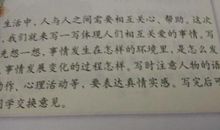 生活中,人与人之间需要相互关心、帮助。这次
我们就来写一写体现人们相互关爱的事情,写
先想一想,事情发生在怎样的环境里,是怎么发
事情发展变化的过程怎样。写时注意人物的语
动作、心理活动等,要表达真情实感。写完后可
同学交换意见。